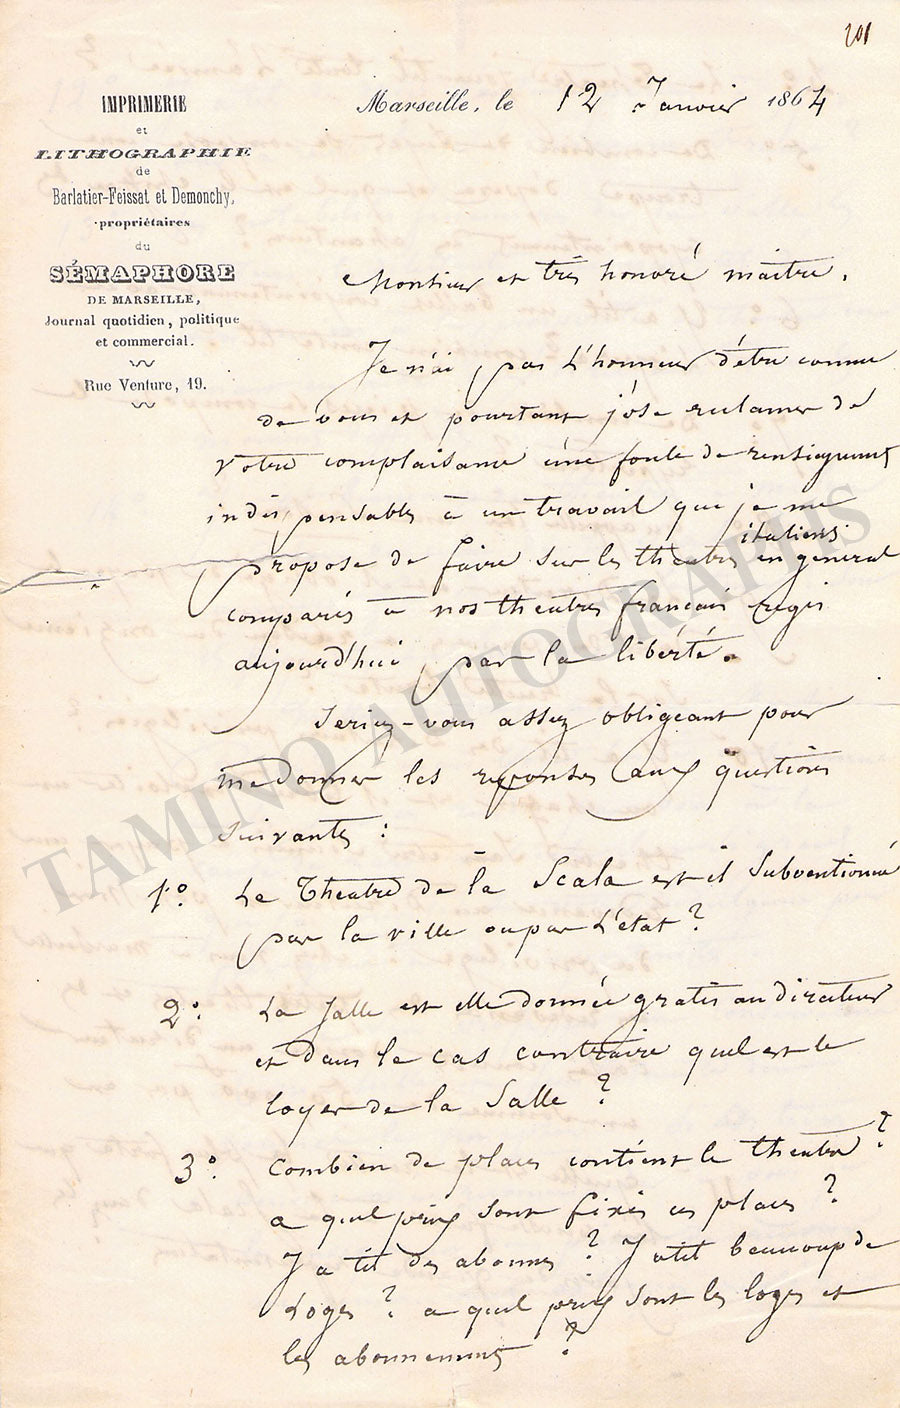 201
IMPRIMERIE
et
LITHOGRAPHIE
de
Barlatier-Feissat et Demonchy,
propriétaires
du
SÉMAPHORE
DE MARSEILLE,
Journal quotidien, politique
et commercial.
Rue Venture, 19.
Marseille, le 12 Janvier 1864
Monsieur et très honoré maître,
Je n'ai pas l'honneur d'être connu
de vous et pourtant j'ose reclamer de
votre complaisance une foule de renseignements
indispensables à un travail que je me
propose de faire sur les theatres italiens en general
comparés à nos theatres francais regis
aujourd'hui par la liberté.
Seriez-vous assez obligeant pour
me donner les reponses aux questions
suivantes :
1º. Le Theatre de la Scala est il subventionné
par la ville ou par l'état ?
2º. La salle est elle donnée gratis au directeur
et dans le cas contraire quel est le
loyer de la Salle ?
3º. Combien de places contient le theatre ?
a quel prix sont fixés ces places ?
Y a til des abonnes ? Y atil beaucoup de
Loges ? a quel prix sont les loges et
les abonnements ?
TAMINO AUTOGRAPHS